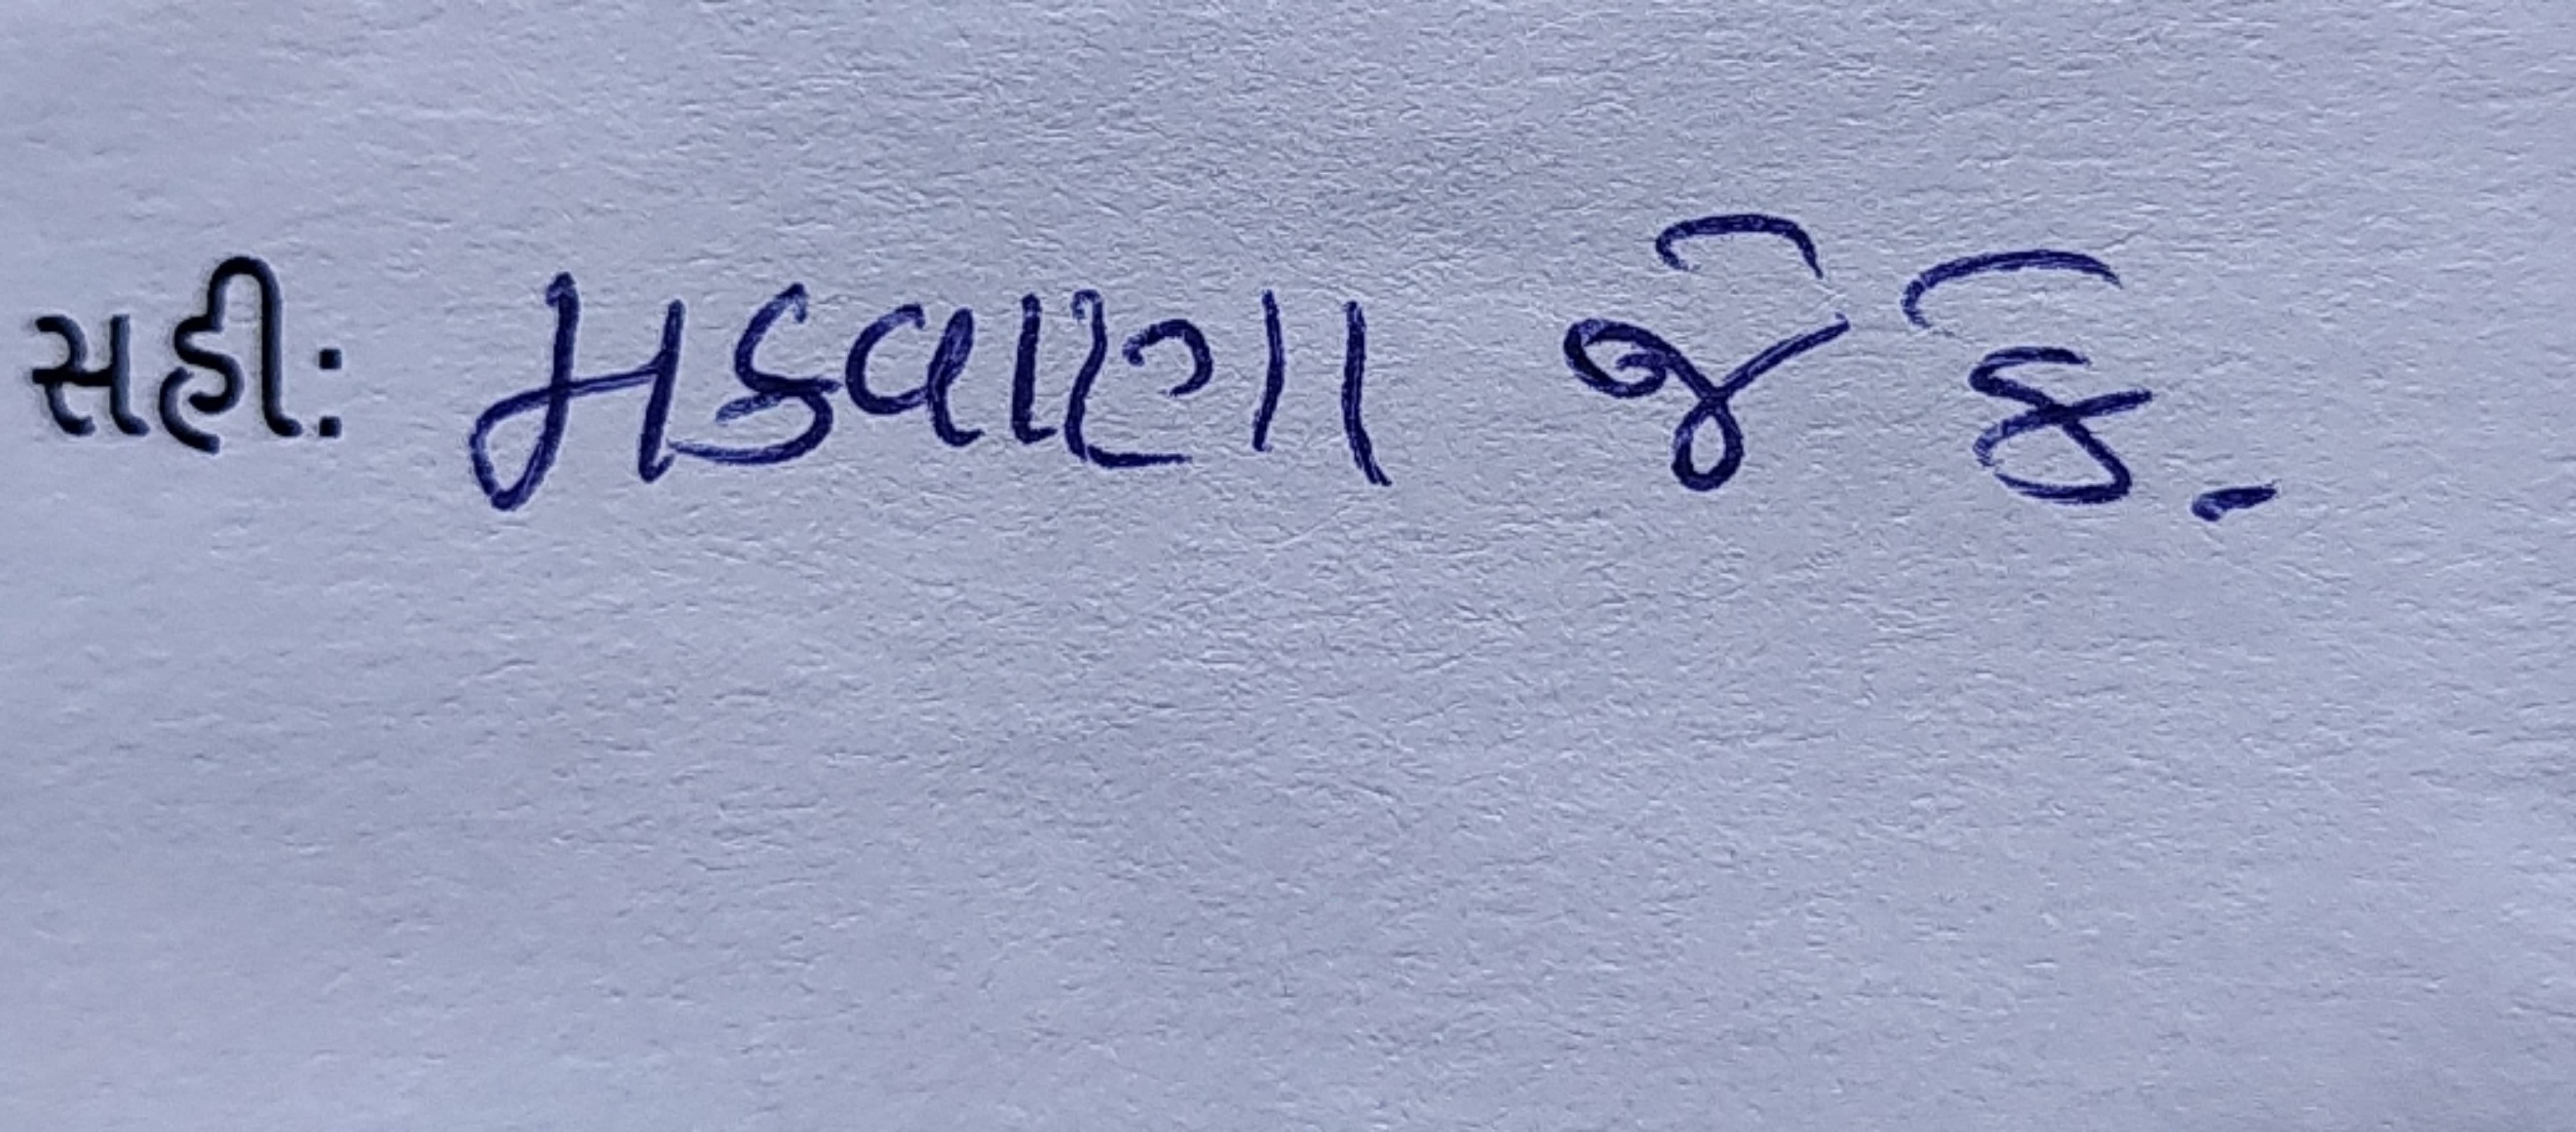 સહી: મકવાણા જે કે.